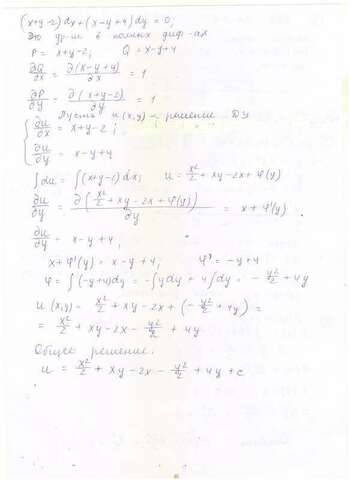 (x+y-2)dx+(x-y+4)dy=0,
Это ур-ие в полных диф-ах
P = x+y-2, Q = x-y+4
∂Q/∂x = ∂(x-y+4)/∂x = 1
∂P/∂y = ∂(x+y-2)/∂y = 1
Пусть u(x,y) - решение ДУ
{ ∂u/∂x = x+y-2;
∂u/∂y = x-y+4
∫du = ∫(x+y-2)dx; u = x²/2 + xy - 2x + φ(y)
∂u/∂y = ∂(x²/2 + xy - 2x + φ(y))/∂y = x + φ'(y)
∂u/∂y = x-y+4;
x+φ'(y) = x-y+4; φ' = -y+4
φ = ∫(-y+4)dy = -∫ydy + 4∫dy = - y²/2 + 4y
u(x,y) = x²/2 + xy - 2x + (- y²/2 + 4y) =
= x²/2 + xy - 2x - y²/2 + 4y
Общее решение:
u = x²/2 + xy - 2x - y²/2 + 4y + c